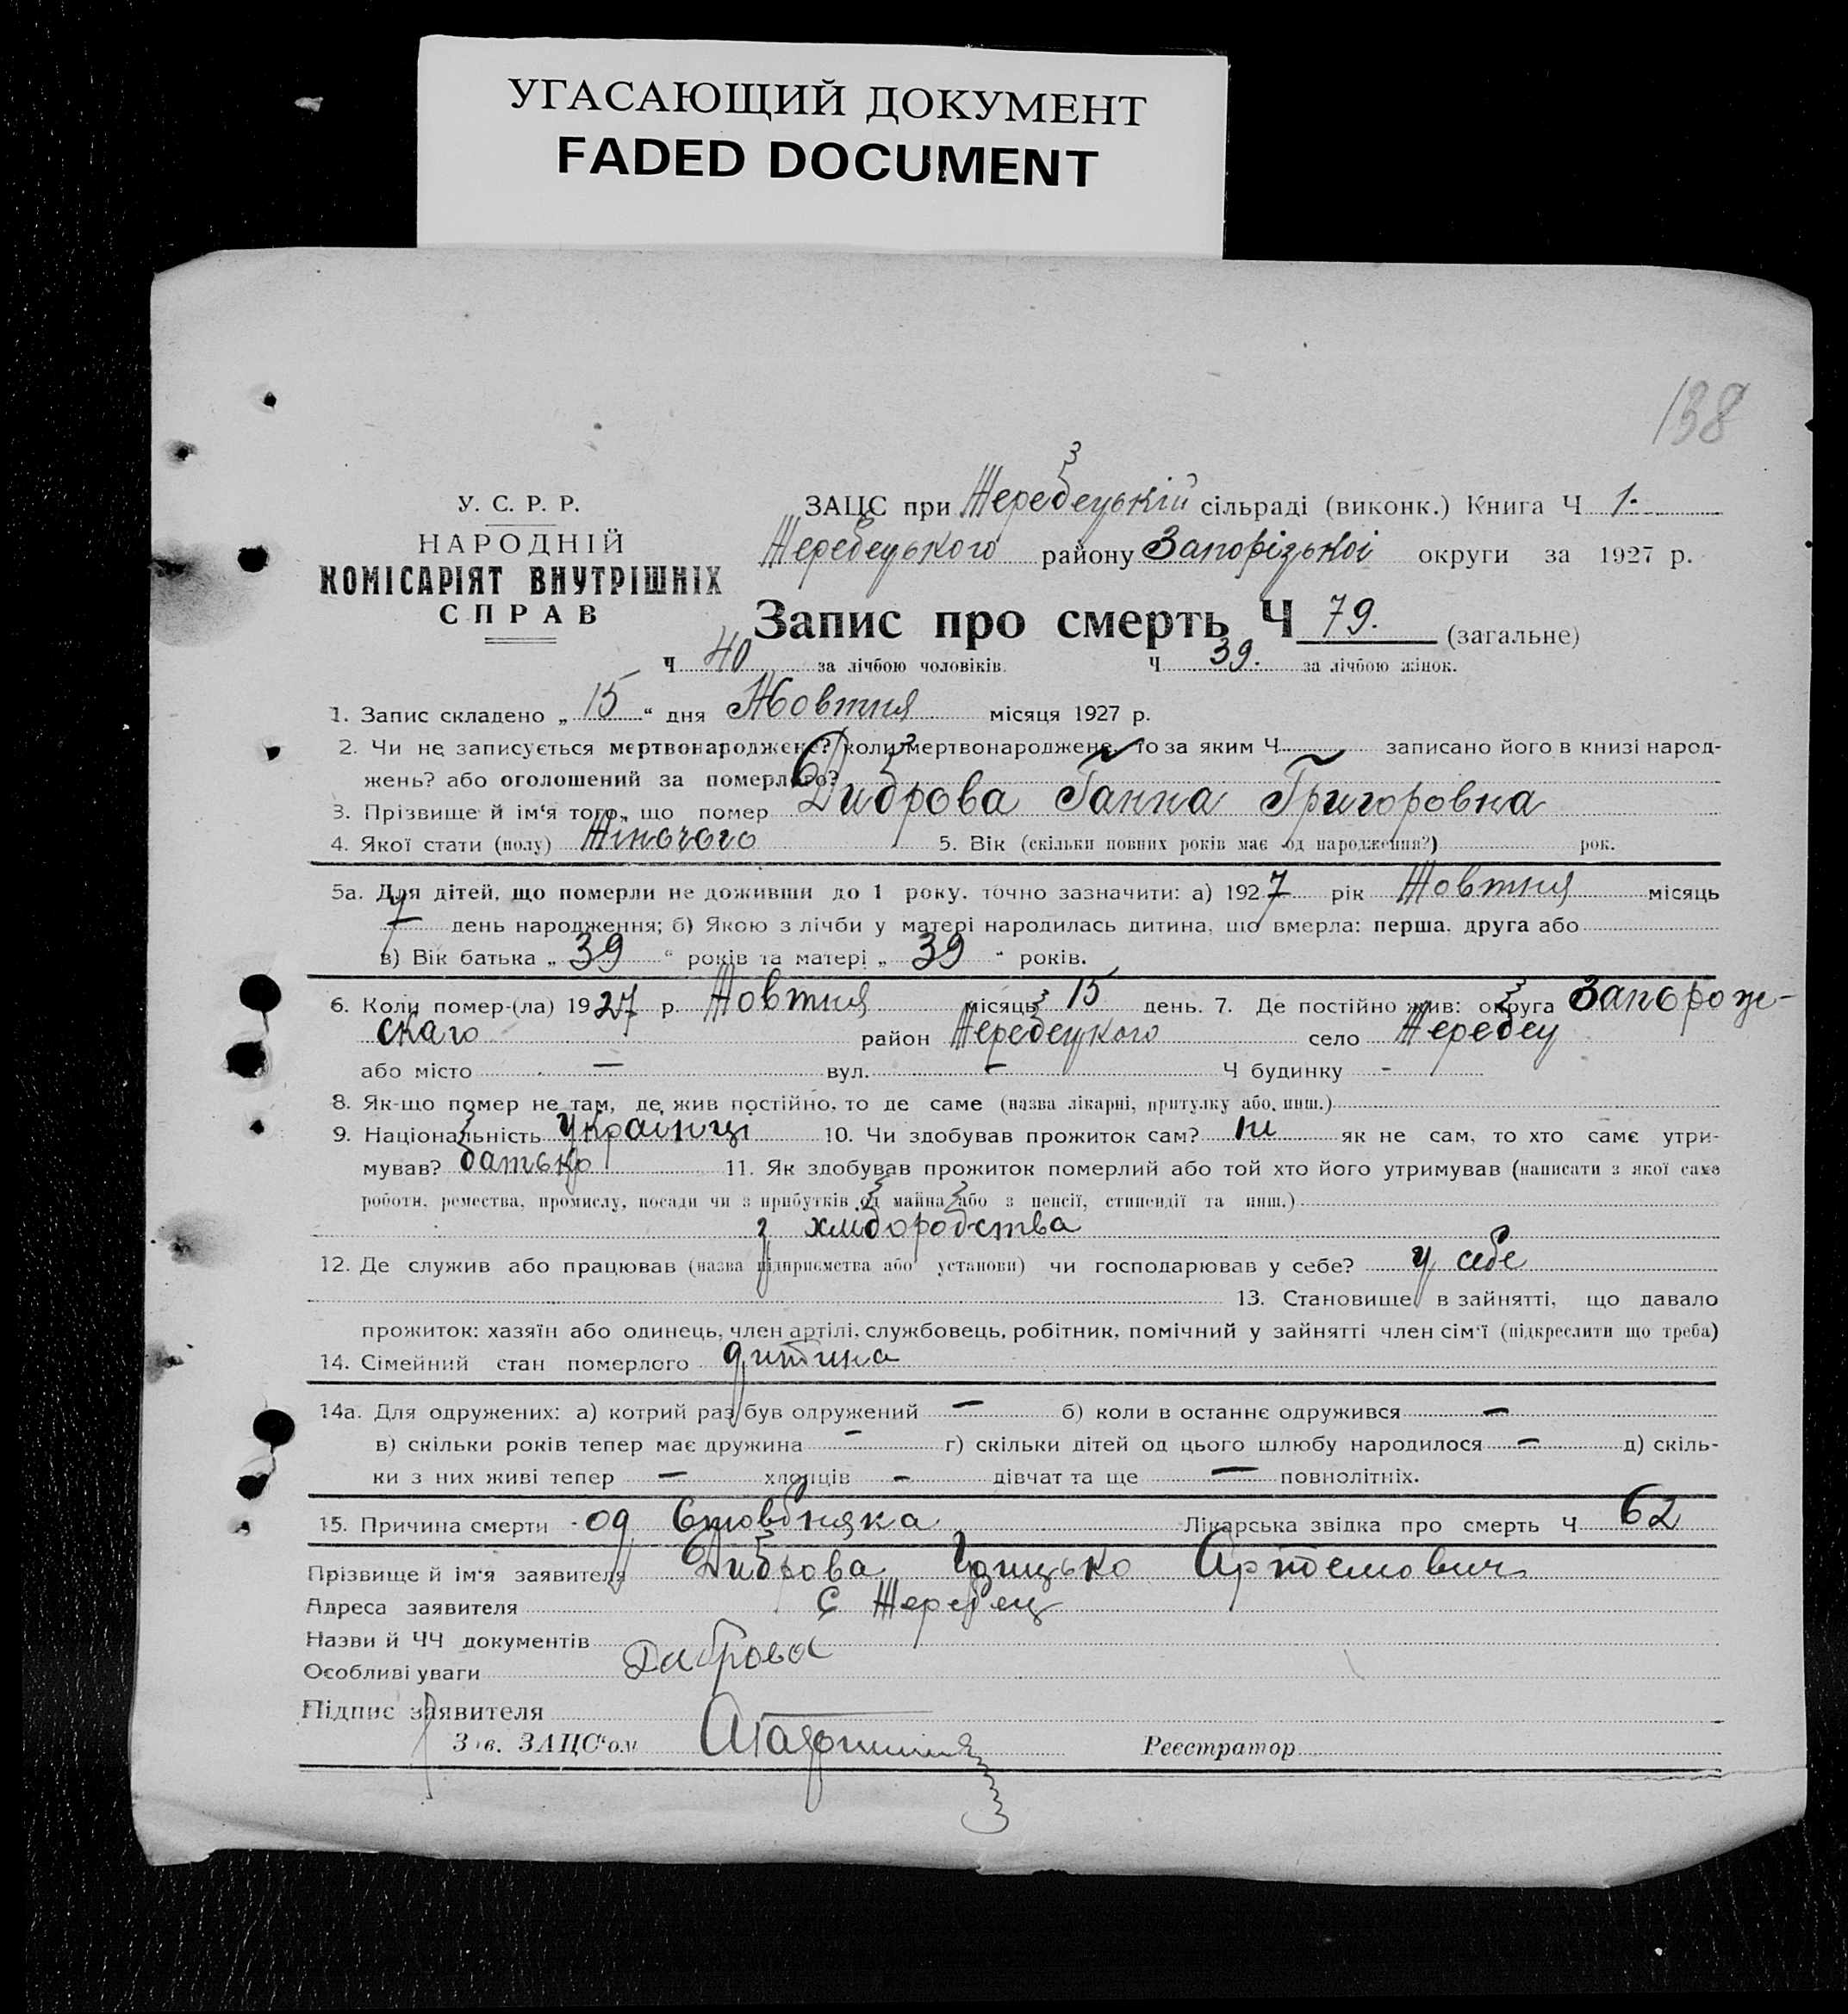 УГАСАЮЩИЙ ДОКУМЕНТ
FADED DOCUMENT
138
У. С. Р. Р.
НАРОДНІЙ
КОМІСАРІЯТ ВНУТРІШНІХ
СПРАВ
ЗАЦС при Жеребецькій сільраді (виконк.) Книга Ч 1.
Жеребецького району Запорізької округи за 1927 р.
Запис про смерть Ч 79. (загальне)
Ч 40 за лічбою чоловіків. Ч 39. за лічбою жінок.
1. Запис складено „ 15 “ дня Жовтня місяця 1927 р.
2. Чи не записується мертвонароджене? коли мертвонароджене, то за яким Ч записано його в книзі народ-
жень? або оголошений за померлого?
3. Прізвище й ім‘я того, що помер Диброва Ганна Григоровна
4. Якої стати (полу) Жіночого 5. Вік (скільки повних років має од народження?) рок.
5а. Для дітей, що померли не доживши до 1 року, точно зазначити: а) 1927 рік Жовтня місяць
7 день народження; б) Якою з лічби у матері народилась дитина, що вмерла: перша, друга або
в) Вік батька „ 39 “ років та матері „ 39 “ років.
6. Коли помер-(ла) 1927 р. Жовтня місяць 15 день. 7. Де постійно жив: округа Запорож-
скаго район Жеребецкого село Жеребец
або місто — вул. — Ч будинку -
8. Як-що помер не там, де жив постійно, то де саме (назва лікарні, притулку або инш.)
9. Національність Українці 10. Чи здобував прожиток сам? ні як не сам, то хто саме утри-
мував? батько 11. Як здобував прожиток померлий або той хто його утримував (написати з якої саме
роботи, ремества, промислу, посади чи з прибутків од майна або з пенсії, стипендії та инш.)
з хлибородства
12. Де служив або працював (назва підприємства або установи) чи господарював у себе? у себе
13. Становище в зайнятті, що давало
прожиток: хазяїн або одинець, член артілі, службовець, робітник, помічний у зайнятті член сім‘ї (підкреслити що треба)
14. Сімейний стан померлого дитина
14а. Для одружених: а) котрий раз був одружений — б) коли в останнє одружився —
в) скільки років тепер має дружина — г) скільки дітей од цього шлюбу народилося — д) скіль-
ки з них живі тепер — хлопців — дівчат та ще — повнолітніх.
15. Причина смерти - од Стовбняка Лікарська звідка про смерть Ч 62
Прізвище й ім‘я заявителя Диброва Грицько Артемович
Адреса заявителя с Жеребец
Назви й ЧЧ документів
Особливі уваги Диброва
Підпис заявителя
Зав. ЗАЦС‘ом
Реєстратор